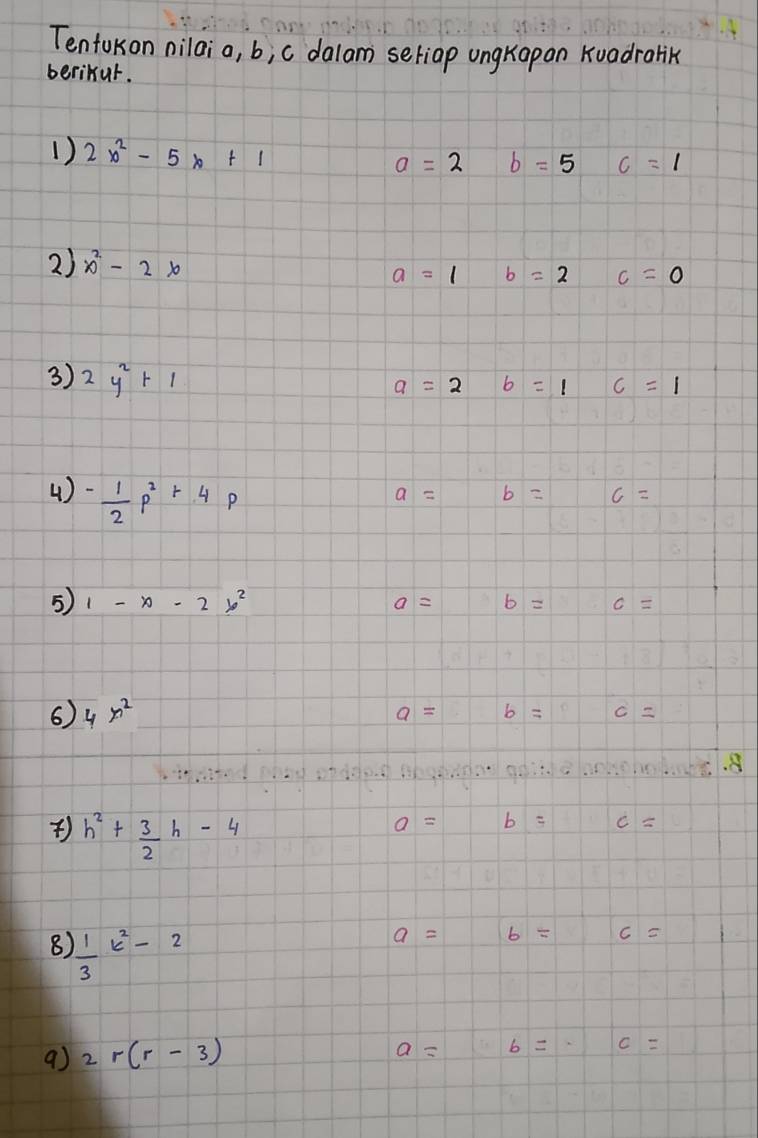 Tentukan nilai a, b, c dalam setiap ungkapan kuadratik
berikut.
1) 2x² - 5x + 1 a = 2 b = 5 c = 1
2) x² - 2x a = 1 b = 2 c = 0
3) 2y² + 1 a = 2 b = 1 c = 1
4) -1/2 p² + 4p a = b = c =
5) 1 - x - 2x² a = b = c =
6) 4x² a = b = c =
7) h² + 3/2 h - 4 a = b = c =
8) 1/3 k² - 2 a = b = c =
9) 2r(r - 3) a = b = c =